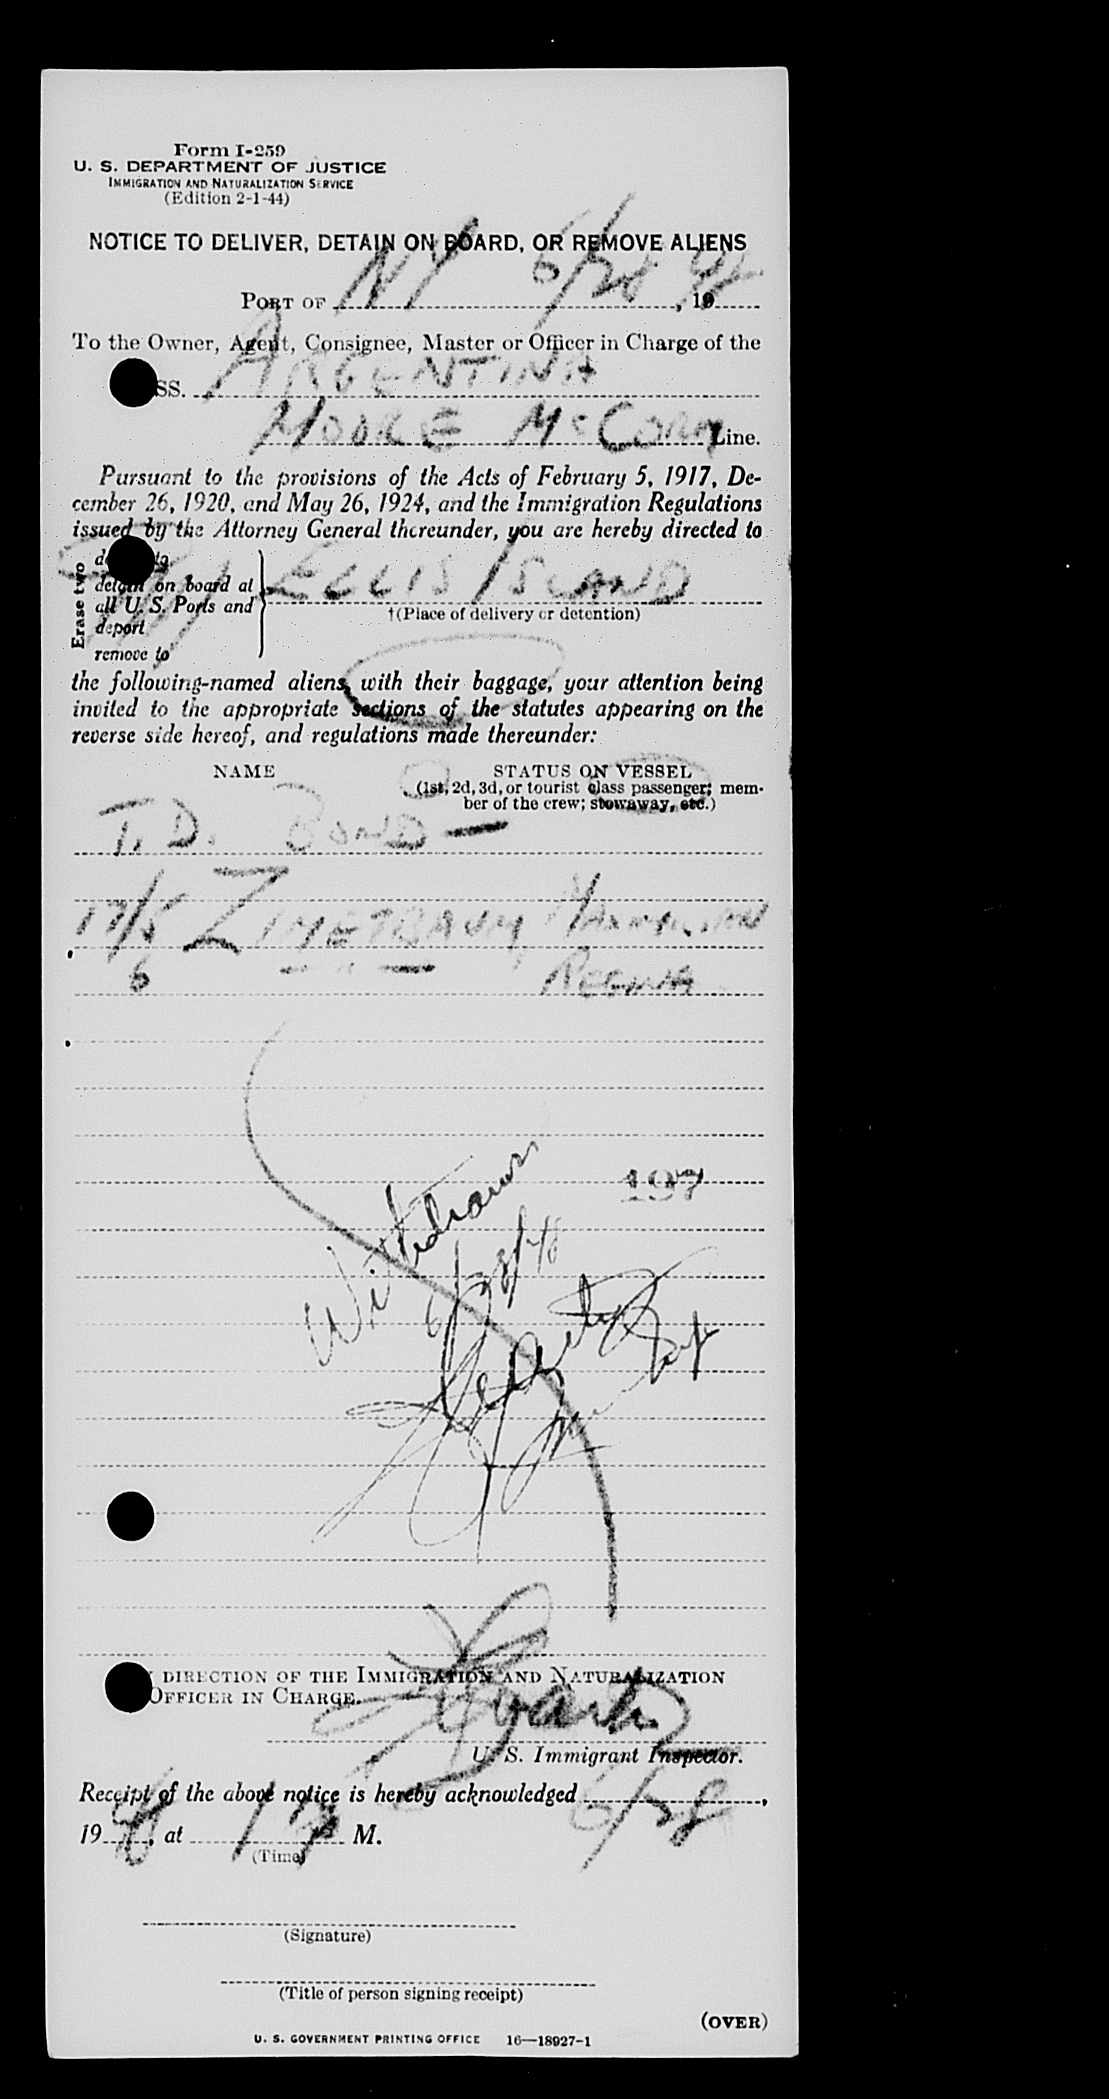 Form I-259
U. S. DEPARTMENT OF JUSTICE
IMMIGRATION AND NATURALIZATION SERVICE
(Edition 2-1-44)
NOTICE TO DELIVER, DETAIN ON BOARD, OR REMOVE ALIENS
PORT OF NY 6/28, 1948
To the Owner, Agent, Consignee, Master or Officer in Charge of the
SS. ARGENTINA
MOORE McCORM Line.
Pursuant to the provisions of the Acts of February 5, 1917, De-
cember 26, 1920, and May 26, 1924, and the Immigration Regulations
issued by the Attorney General thereunder, you are hereby directed to
Erase two
to
detain on board at
all U. S. Ports and
deport
remove to
ELLIS ISLAND
†(Place of delivery or detention)
the following-named aliens, with their baggage, your attention being
invited to the appropriate sections of the statutes appearing on the
reverse side hereof, and regulations made thereunder:
NAME STATUS ON VESSEL
(1st, 2d, 3d, or tourist class passenger; mem-
ber of the crew; stowaway, etc.)
T. D. BOND —
17/5 ZIMETBAUM, MAXMILIAN
6 — " — REGINA
197
Withdrawn
6/28/48
DIRECTION OF THE IMMIGRATION AND NATURALIZATION
OFFICER IN CHARGE.
U. S. Immigrant Inspector.
Receipt of the above notice is hereby acknowledged 6/28,
1948, at 1 P M.
(Time)
(Signature)
(Title of person signing receipt)
(OVER)
U. S. GOVERNMENT PRINTING OFFICE 16—18927-1